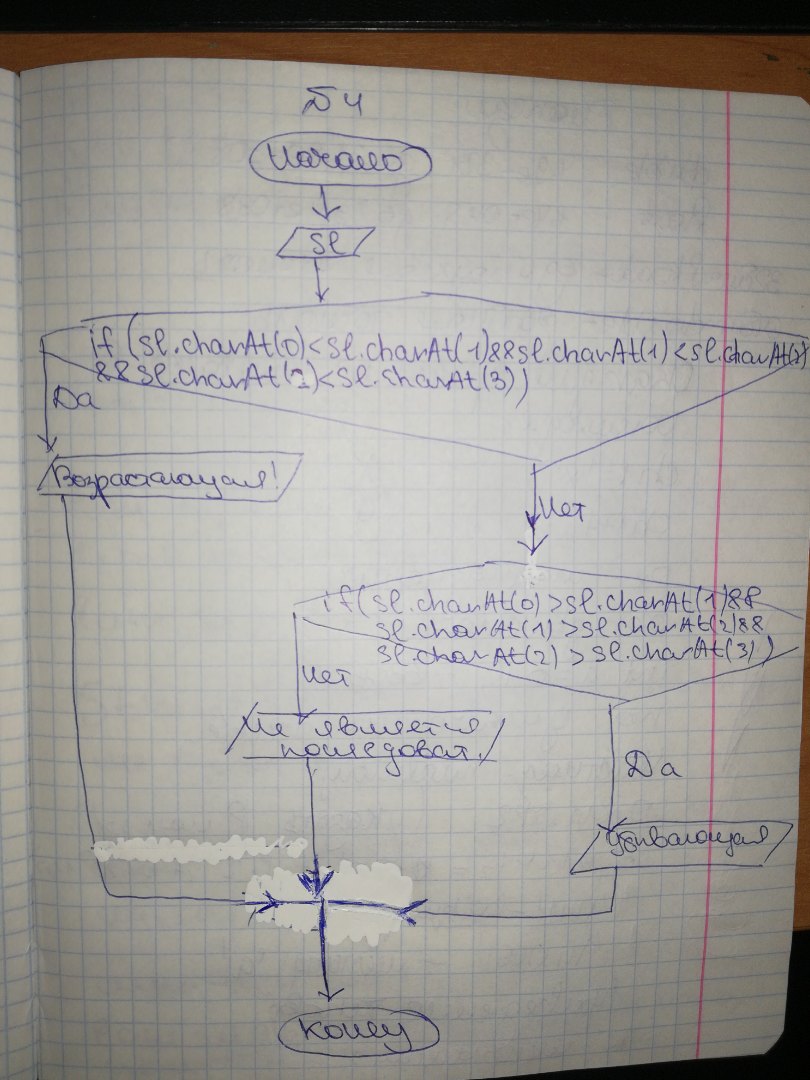 Б4
Начало
sl
if (sl.charAt(0)<sl.charAt(1)&&sl.charAt(1)<sl.charAt(2)
&&sl.charAt(2)<sl.charAt(3))
Да
Возрастающая!
Нет
if(sl.charAt(0)>sl.charAt(1)&&
sl.charAt(1)>sl.charAt(2)&&
sl.charAt(2)>sl.charAt(3))
Нет
Не является
последоват.
Да
Убивающая
Конец